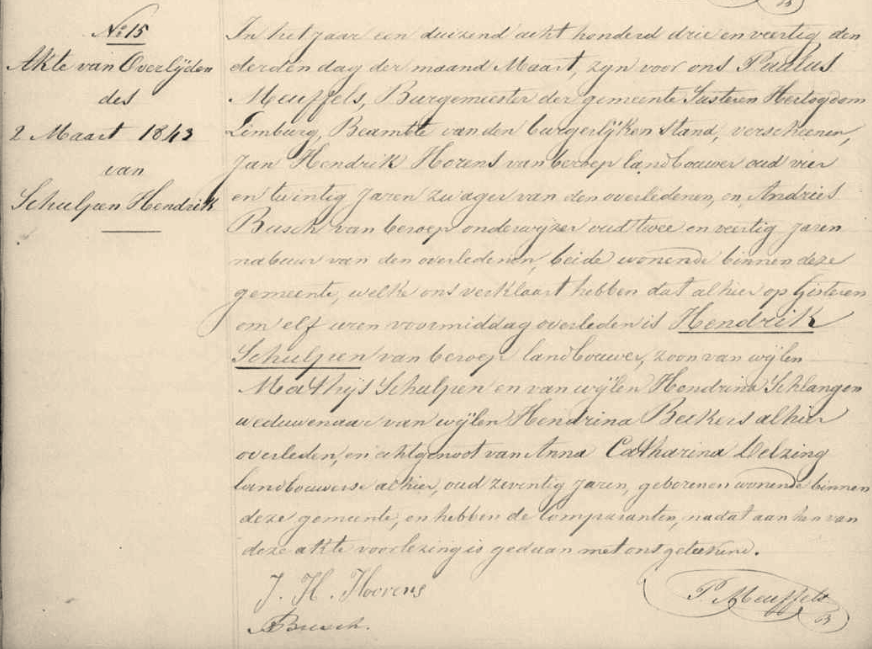 No 15
Akte van Overlijden
des
2 Maart 1843
van
Schulpen Hendrik
In het jaar een duizend acht honderd drie en veertig den
derden dag der maand Maart, zyn voor ons Paulus
Meuffels, Burgemeester der gemeente Susteren Hertogdom
Limburg, Beambte van den burgerlyken stand, verscheenen,
Jan Hendrik Horens van beroep landbouwer oud vier
en twintig Jaren zwager van den overledenen, en Andries
Busch van beroep onderwyzer oud twee en veertig Jaren
nabuur van den overledenen, beide wonende binnen deze
gemeente, welke ons verklaart hebben dat alhier op Gisteren
om elf uren voormiddag overleden is Hendrik
Schulpen van beroep landbouwer, zoon van wylen
Mathys Schulpen en van wylen Hendrina Schlangen
weduwenaar van wylen Hendrina Beckers alhier
overleden, en achtgenoot van Anna Catharina
landbouwerse alhier, oud zeventig Jaren, geboren en wonende binnen
deze gemeente, en hebben de Comparanten, na dat aan hen van
deze akte voorlezing is gedaan met ons geteekend.
J. H. Hoevens
P. Meuffels
ABusch.